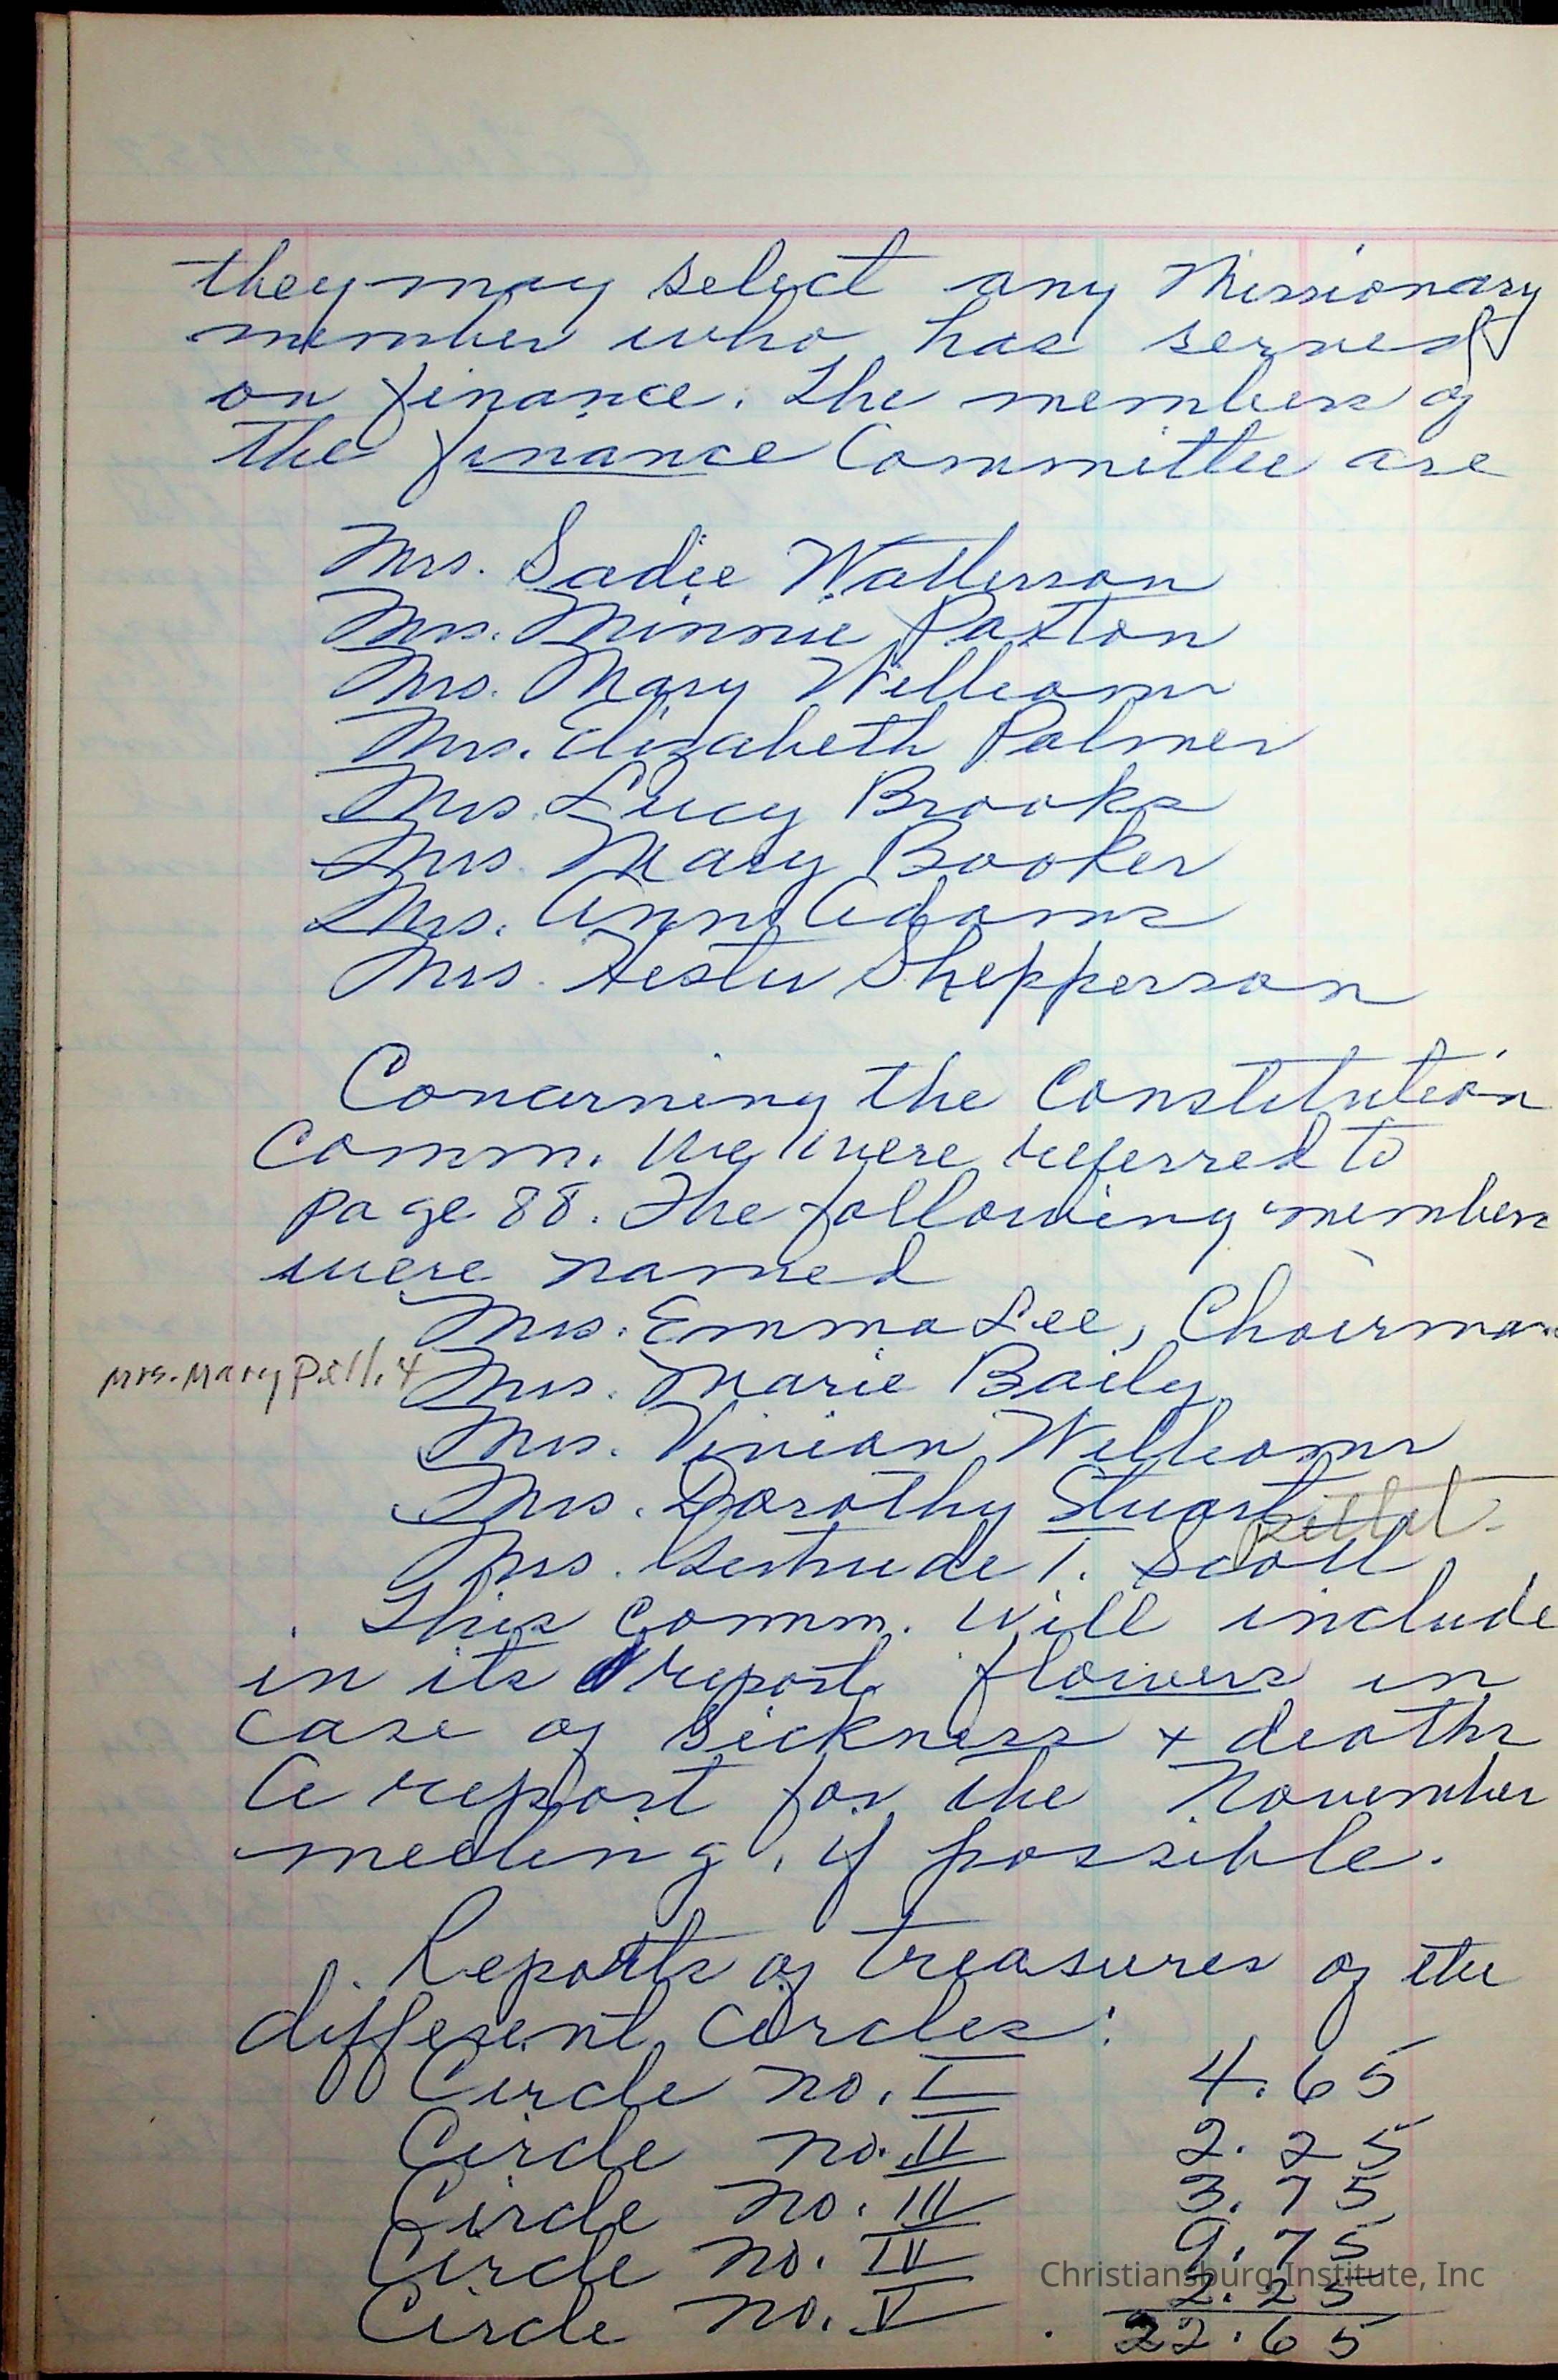 they may select any Missionary
member who has served
on finance. The members of
the finance Committee are
Mrs. Sadie Watterson
Mrs. Minnie Paxton
Mrs. Mary Williams
Mrs. Elizabeth Palmer
Mrs. Lucy Brooks
Mrs. Mary Booker
Mrs. Ann Adams
Mrs. Hester Shepperson
Concerning the Constitution
Comm. We were referred to
page 88. The following members
were named
Mrs. Emma Lee, Chairman
Mrs. Mary
Mrs. Marie Baily
Mrs. Vivian Williams
Mrs. Dorothy Stuart
Mrs. Gertrude T. Scott
This Comm. will include
in its report flowers in
case of sickness + deaths
A report for the November
meeting, if possible.
Reports of treasures of the
different Circles:
Circle no. I 4.65
Circle no. II 2.25
Circle no. III 3.75
Circle no. IV 9.75
Circle no. V 2.25
22.65
Christiansburg Institute, Inc